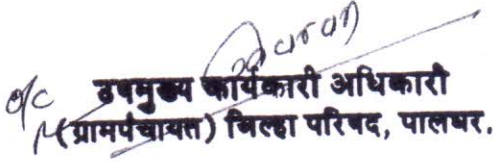 o/c
उपमुख्य कार्यकारी अधिकारी
(ग्रामपंचायत) जिल्हा परिषद, पालघर.